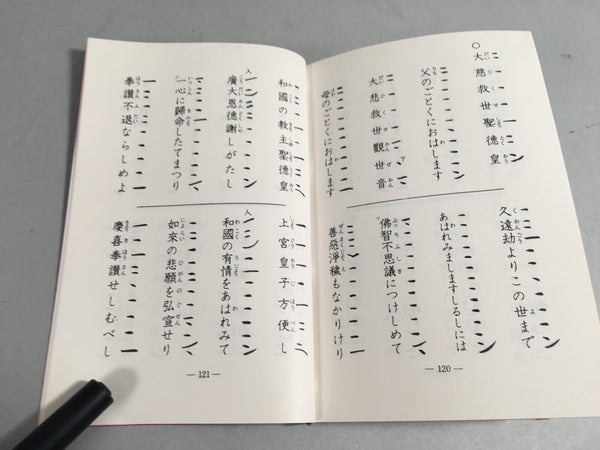 大慈救世聖德皇
父のごとくにおはします
大悲救世觀世音
母のごとくにおはします
久遠劫よりこの世まで
あはれみましますしるしには
佛智不思議につけしめて
善惡淨穢もなかりけり
— 120 —
和國の教主聖德皇
廣大恩德謝しがたし
一心に歸命したてまつり
奉讚不退ならしめよ
上宮皇子方便し
和國の有情をあはれみて
如來の悲願を弘宣せり
慶喜奉讚せしむべし
— 121 —